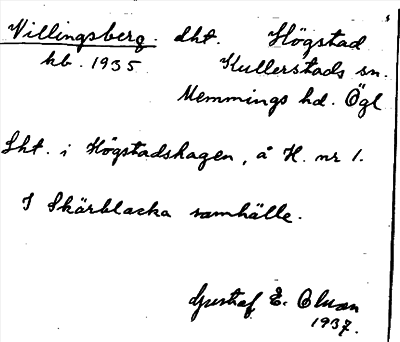 Villingsberg. dht. Högstad
kb. 1935 Kullerstads sn.
Memmings hd. Ögl
Lht. i Högstadshagen, å H. nr 1.
I Skärblacka samhälle.
Gustaf E. Olson
1937.